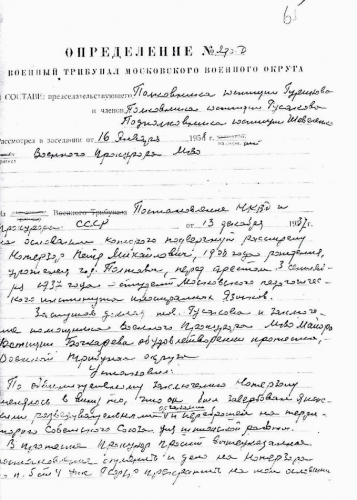 ОПРЕДЕЛЕНИЕ №
ВОЕННЫЙ ТРИБУНАЛ МОСКОВСКОГО ВОЕННОГО ОКРУГА
СОСТАВЕ: председательствующего Полковника юстиции
и членов Полковника юстиции Гусакова
Подполковника юстиции Шевченко
Рассмотрел в заседании от 16 Января 195
Военного Прокурора Мво
на Военного Трибунала Постановление НКВД и
Прокурора СССР от 13 декабря 1937г.
на основании которого подвергнут расстрелу
Петр Михайлович, 1908 года рождения,
уроженец гор. Полтавы, перед арестом 3 Сентяб-
ря 1937 года - студент Московского педагогичес-
кого института иностранных языков.
Заслушав доклад тов. Гусакова и заключе-
ние помощника Военного Прокурора Мво Майора
юстиции Бочкарева об удовлетворении протеста,
Военный Трибунал округа
Установил:
По обвинительному заключению
вменялось в вину то, что он был завербован
разведывательными и переброшен на терри-
торию Советского Союза для шпионской работы.
В протесте Прокурор просит вышеуказанное
постановление отменить и дело на
по п. 5 ст 4 УПК РСФСР прекратить